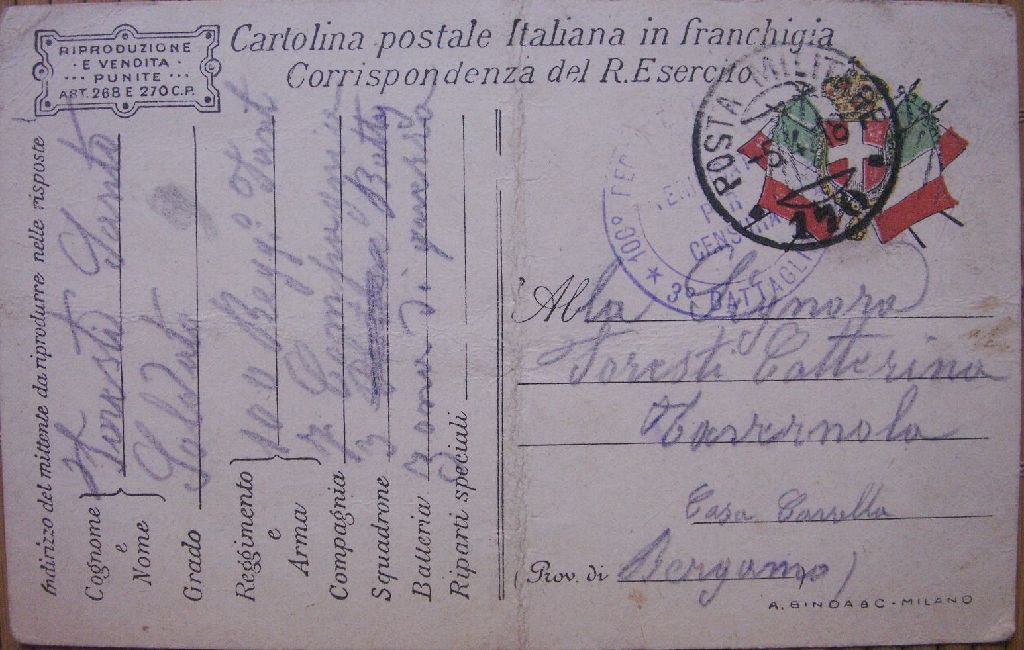 RIPRODUZIONE
E VENDITA
PUNITE
ART. 268 E 270 C.P.
Cartolina postale Italiana in franchigia
Corrispondenza del R. Esercito
POSTA MILITARE
170
100°
CENSURA
★ 3° BATTAGLI
Indirizzo del mittente da riprodurre nelle risposte
Cognome e Nome Foresti Santo
Grado Soldato
Reggimento e Arma 100 Regg.° Fant
Compagnia 12 Compagnia
Squadrone
Batteria zona di guerra
Riparti speciali
Alla Signora
Foresti Catterina
Tavernola
Casa
(Prov. di Bergamo)
A. BINDA & C - MILANO